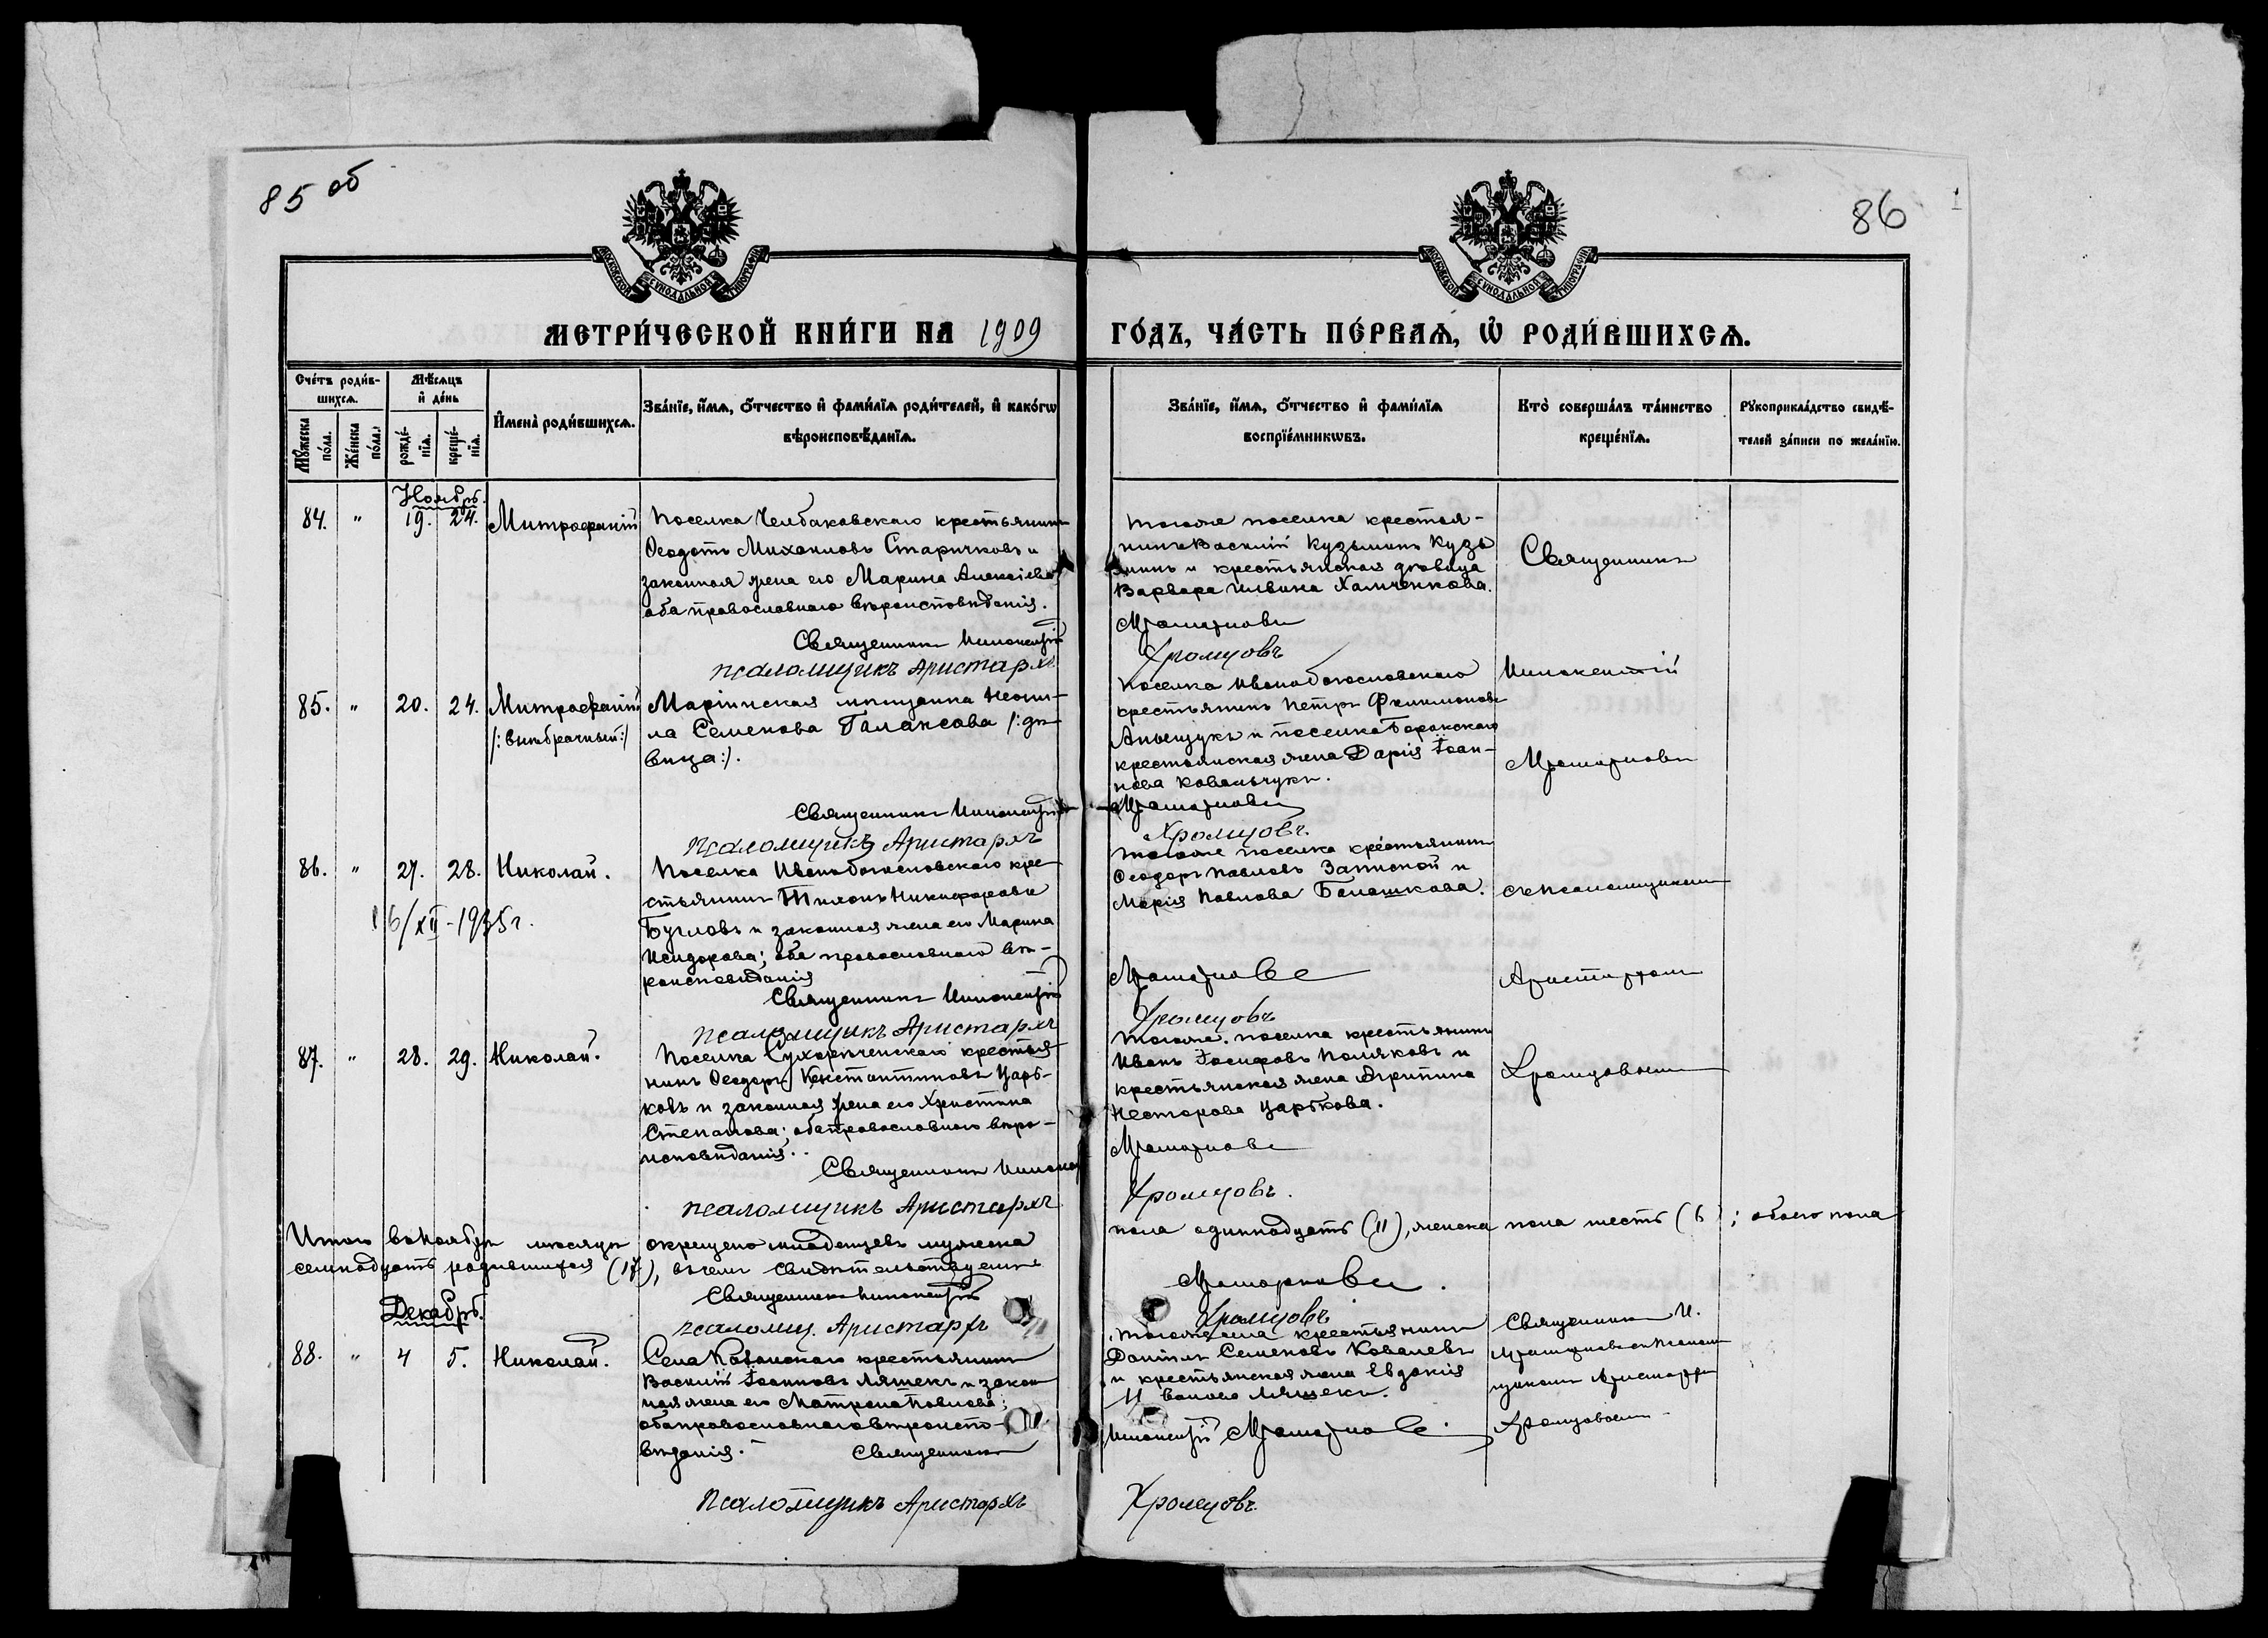 85 об
86
МОСКОВСКОЙ СУНОДАЛЬНОЙ ТИПОГРАФІИ
МОСКОВСКОЙ СУНОДАЛЬНОЙ ТИПОГРАФІИ
МЕТРИ́ЧЕСКОЙ КНИ́ГИ НА 1909
ГО́ДЪ, ЧА́СТЬ ПЕ́РВАѦ, Ѿ РОДИ́ВШИХСѦ.
Сче́тъ роди́в-
шихсѧ.
Мꙋжеска по́ла.
Же́нска по́ла.
Мѣ́сѧцъ
и҆ де́нь
рожде́-
нїѧ.
креще́-
нїѧ.
И҆мена̀ роди́вшихсѧ.
Зва́нїе, и҆́мѧ, ѻ҆́тчество и҆ фами́лїѧ роди́телей, и҆ како́гѡ
вѣроисповѣ́данїѧ.
Зва́нїе, и҆́мѧ, ѻ҆́тчество и҆ фами́лїѧ
воспрїе́мникѡвъ.
Кто̀ соверша́лъ та́инство
креще́нїѧ.
Рꙋкоприкла́дство свидѣ́-
телей за́писи по жела́нїю.
Ноябрь.
84. " 19. 24. Митрофаній
Поселка Челбаковскаго крестьянинъ
Ѳеодотъ Михаиловъ Старичковъ и
законная жена его Марина Алексіева
оба православнаго вѣроисповѣданія.
Священникъ Иннокентій
псаломщикъ Аристархъ
тогоже поселка крестья-
нинъ Василій Кузьминъ Кузь
минъ и крестьянская дѣвица
Варвара Ильина Хамченкова.
Мраморновъ
Хромцовъ
Священникъ
85. " 20. 24. Митрофаній
/:внѣбрачный:/
Маріинская мѣщанка Неони-
ла Семенова Галаксова /:дѣ-
вица:/.
Священникъ Иннокентій
псаломщикъ Аристархъ
Поселка Иванобогословскаго
крестьянинъ Петръ Филимоновъ
и поселка
крестьянская жена Дарія Іоан-
нова Ковальчукъ.
Мраморновъ
Хромцовъ.
Иннокентій
Мраморновъ
86. " 27. 28. Николай.
16/XII-1935г.
Поселка Иванобогословскаго кре-
стьянинъ Тихонъ Никифоровъ
Бугловъ и законная жена его Марина
Исидорова; оба православнаго вѣ-
роисповѣданія
Священникъ Иннокентій
псаломщикъ Аристархъ
тогоже поселка крестьянинъ
Ѳеодоръ Павловъ Записной и
Марія Павлова Балашкова.
Мраморновъ
Хромцовъ
съ псаломщикомъ
Аристархомъ
87. " 28. 29. Николай.
Поселка Сухорѣченскаго крестья-
нинъ Ѳеодоръ Константиновъ Царь-
ковъ и законная жена его Христина
Степанова; оба православнаго вѣро-
исповѣданія.
Священникъ Иннокен
псаломщикъ Аристархъ
тогоже поселка крестьянинъ
Иванъ Іосифовъ Поляковъ и
крестьянская жена Агрипина
Несторова Царькова.
Мраморновъ
Хромцовъ.
Хромцовымъ
Итого въ Ноябрѣ мѣсяцѣ окрещено младенцевъ мужеска
пола одиннадцать (11), женска пола шесть (6); обоего пола
семнадцать родившихся (17), въ чемъ свидѣтельствуемъ
Священникъ Иннокентій
Мраморновъ.
псаломщ. Аристархъ
Хромцовъ
Декабрь.
88. " 4 5. Николай.
Села Казанскаго крестьянинъ
Василій Іоанновъ Ляшекъ и закон
ная жена его Матрона Павлова;
оба православнаго вѣроиспо-
вѣданія.
Священникъ
псаломщикъ Аристархъ
тогоже села крестьянинъ
Даніилъ Семеновъ Ковалевъ
и крестьянская жена Евдокія
Иванова Ляшекъ.
Иннокентій Мраморновъ.
Хромцовъ.
Священникъ И.
Мраморновъ съ псалом
щикомъ Аристархом
Хромцовымъ